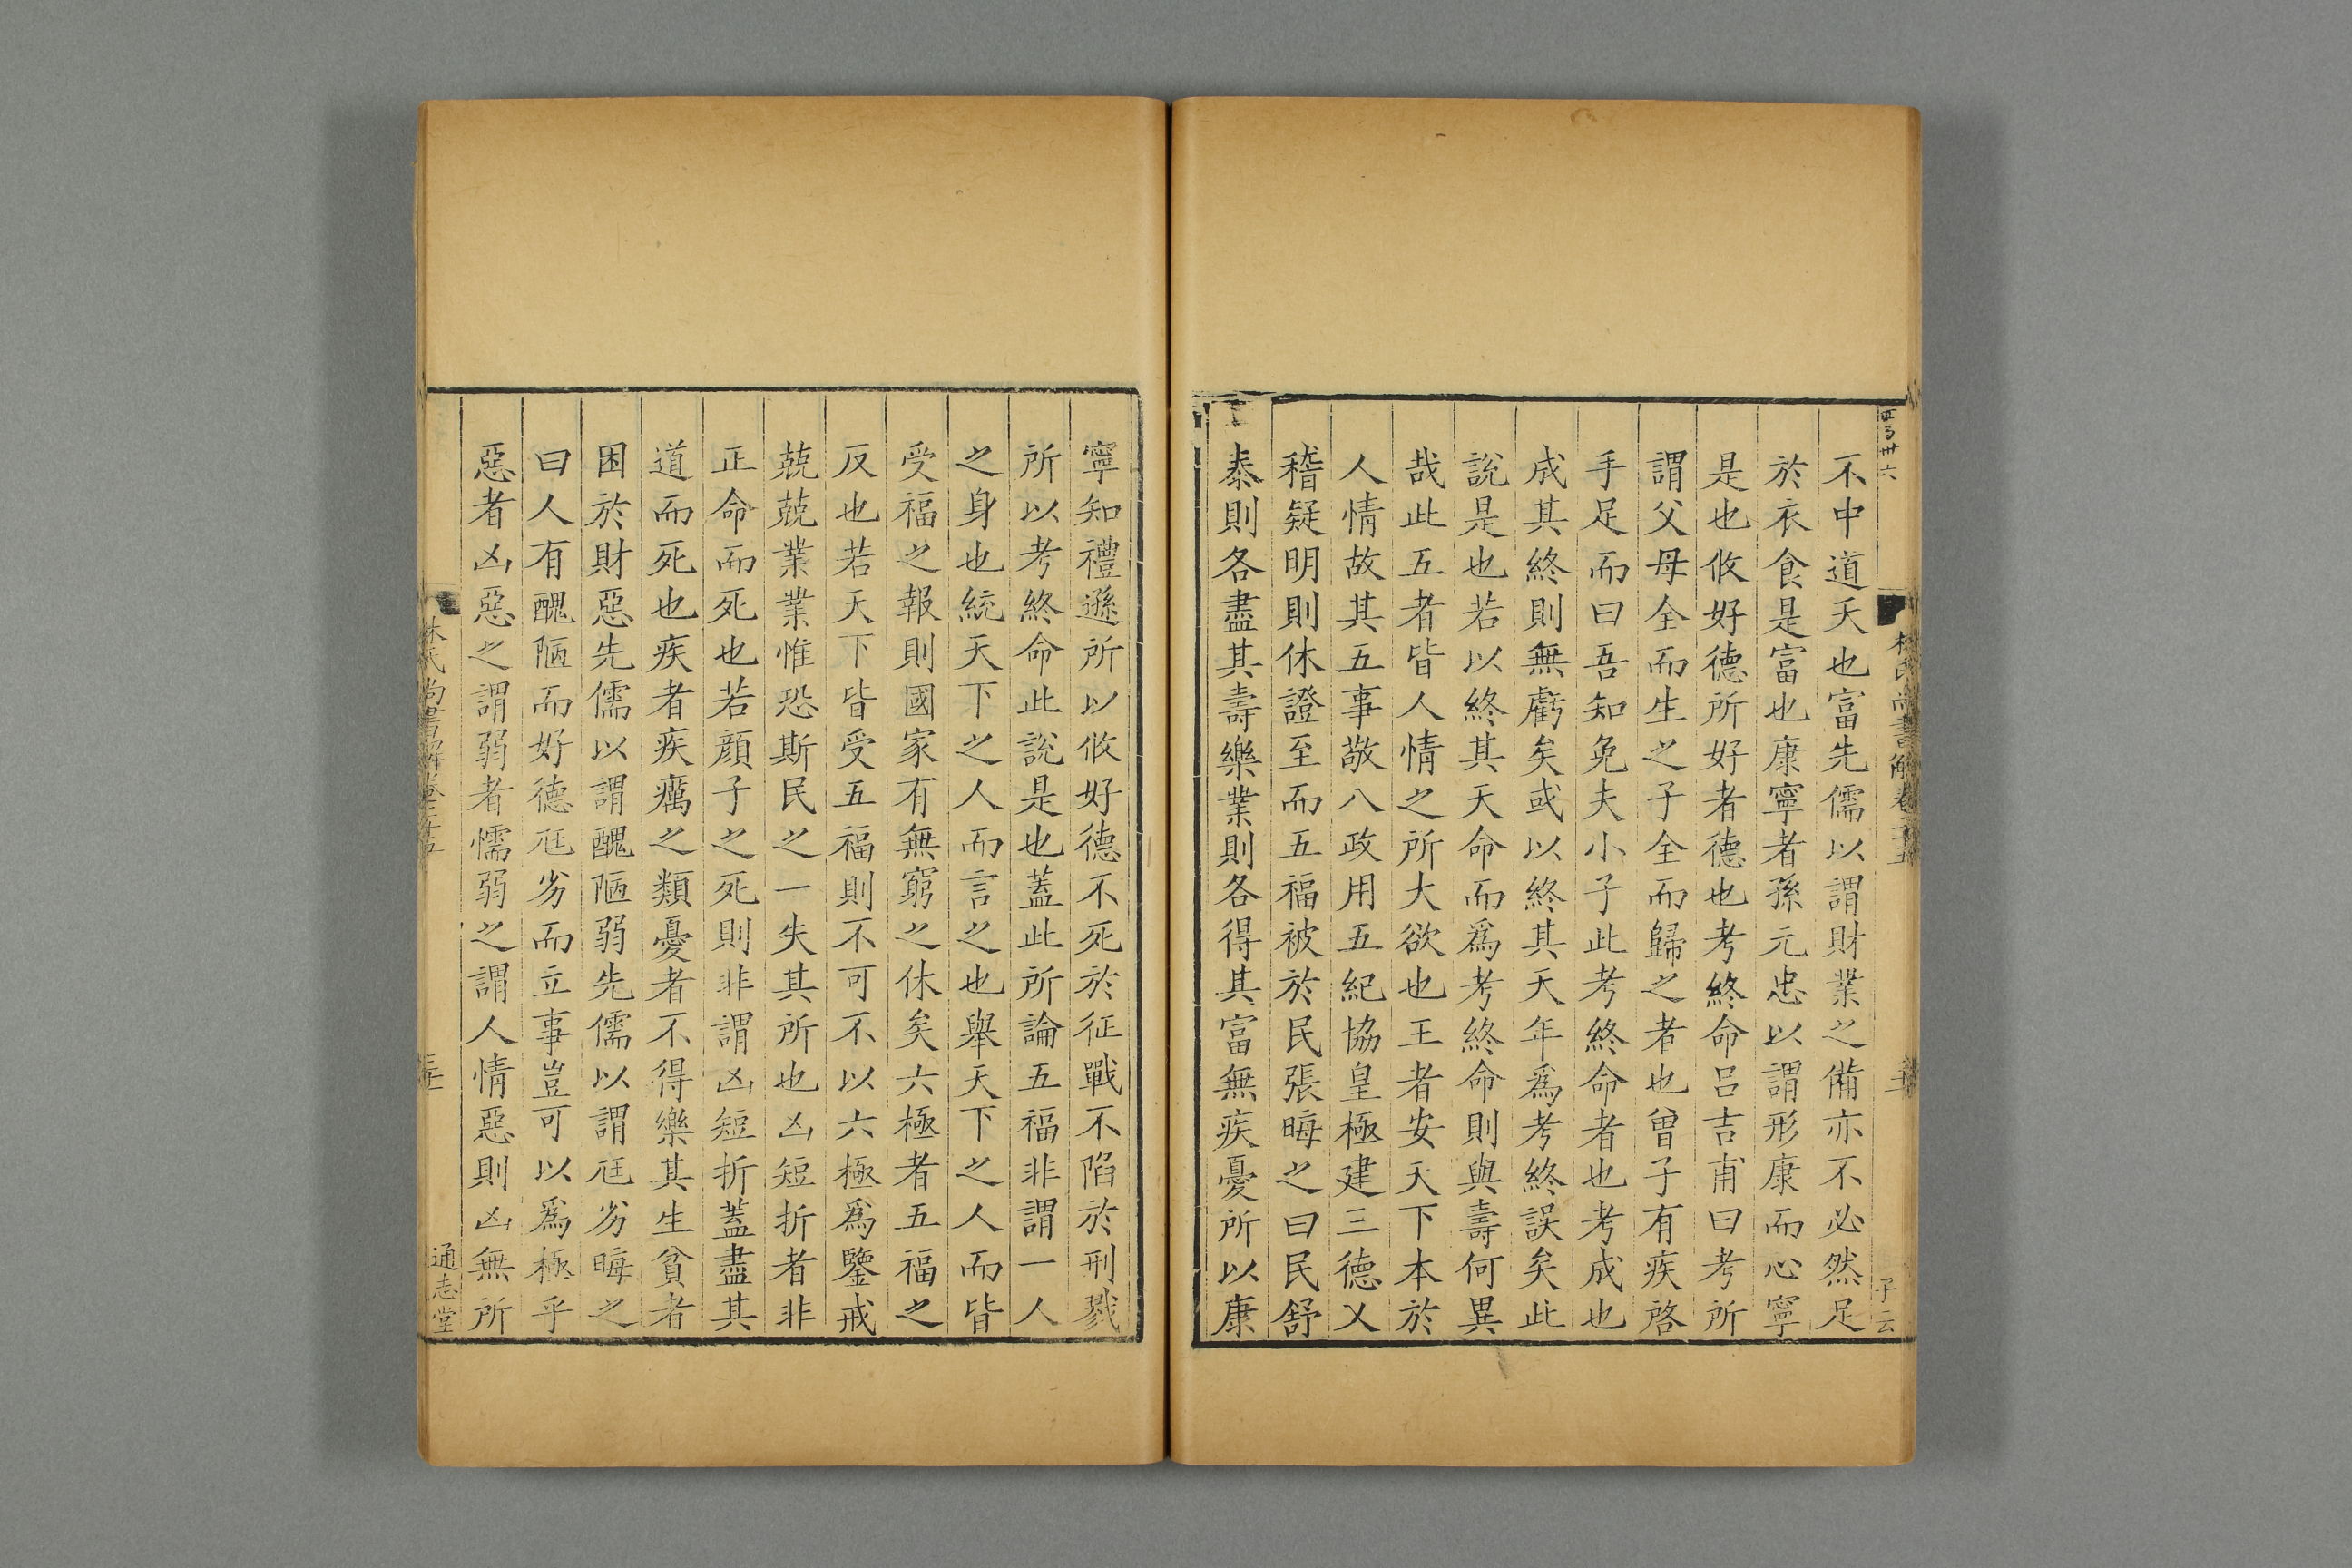 不中道夭也富先儒以謂財業之備亦不必然足
於衣食是富也康寧者孫元忠以謂形康而心寧
是也攸好德所好者德也考終命呂吉甫曰考所
謂父母全而生之子全而歸之者也曾子有疾啓
手足而曰吾知免夫小子此考終命者也考成也
成其終則無虧矣或以終其天年爲考終誤矣此
說是也若以終其天命而爲考終命則與壽何異
哉此五者皆人情之所大欲也王者安天下本於
人情故其五事敬八政用五紀協皇極建三德乂
稽疑明則休證至而五福被於民張晦之曰民舒
泰則各盡其壽樂業則各得其富無疾憂所以康
林氏尚書解卷二十五
子云
寧知禮遜所以攸好德不死於征戰不陷於刑戮
所以考終命此說是也蓋此所論五福非謂一人
之身也統天下之人而言之也舉天下之人而皆
受福之報則國家有無窮之休矣六極者五福之
反也若天下皆受五福則不可不以六極爲鑒戒
兢兢業業惟恐斯民之一失其所也凶短折者非
正命而死也若顏子之死則非謂凶短折蓋盡其
道而死也疾者疾癘之類憂者不得樂其生貧者
困於財惡先儒以謂醜陋弱先儒以謂尫劣晦之
曰人有醜陋而好德尫劣而立事豈可以爲極乎
惡者凶惡之謂弱者懦弱之謂人情惡則凶無所
林氏尚書解卷二十五
通志堂